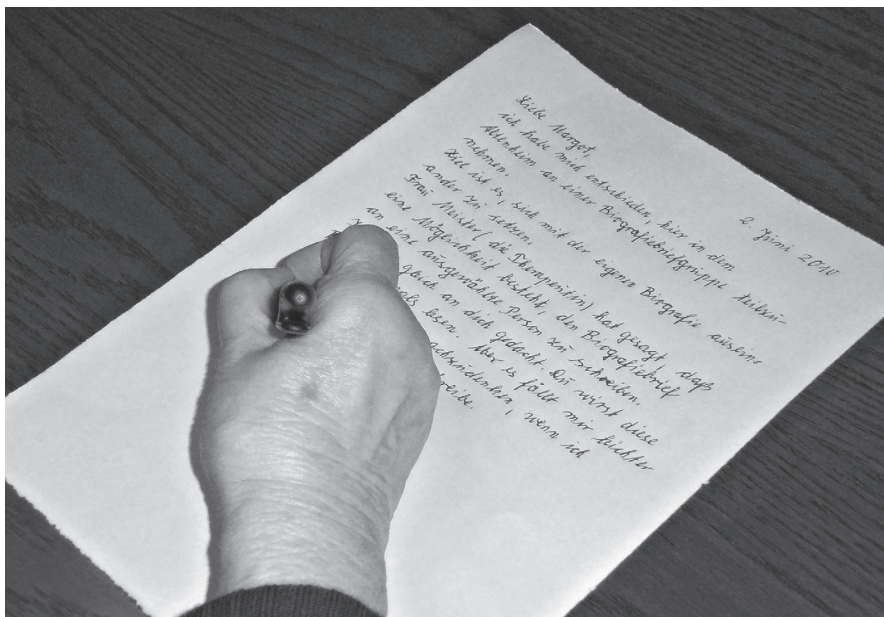 2. Juni 2010
Liebe Margot,
ich habe mich entschieden, hier in dem
Altenheim an einer Biografiebriefgruppe teilzu-
nehmen.
Ziel ist es, sich mit der eigenen Biografie ausein-
ander zu setzen.
Frau Meister (die Therapeutin) hat gesagt, daß
eine Möglichkeit besteht, den Biografiebrief
an eine ausgewählte Person zu schreiben.
gleich an dich gedacht. Du wirst diese
lesen. Aber es fällt mir leichter
wenn ich